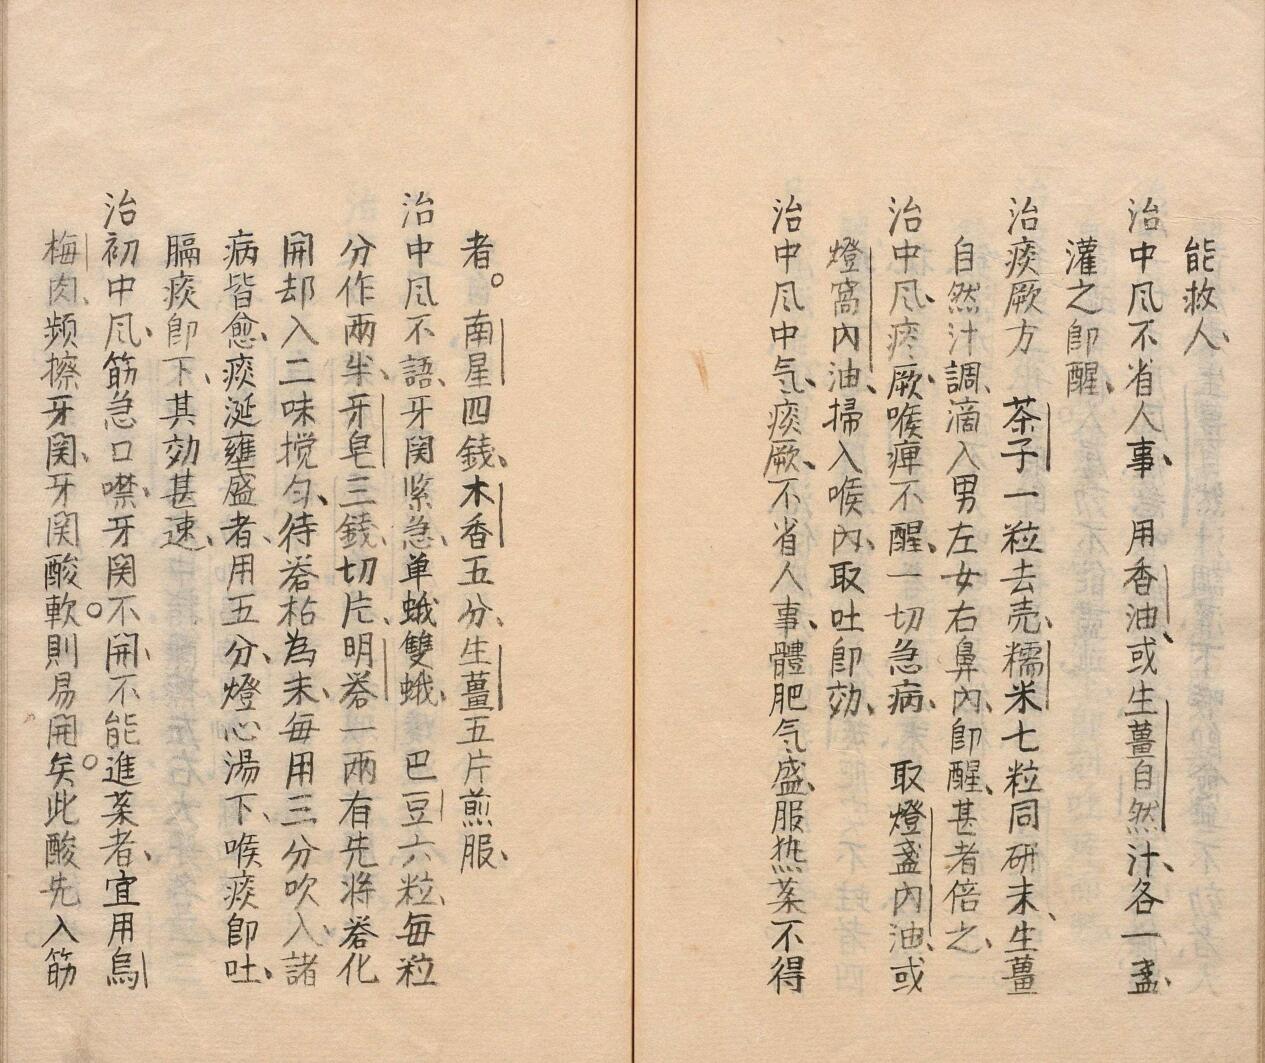 能救人、
治中凮不省人事、　用香油、或生薑自然汁、各一盞、
灌之卽醒、
治痰厥方　茶子一粒去壳、糯米七粒同研末、生薑
自然汁調、滴入男左女右鼻內、卽醒、甚者倍之、
治中凮、痰厥、喉痺不醒、一切急病、　取燈盞內油、或
燈窩內油、掃入喉內、取吐卽効、
治中凮中気、痰厥、不省人事、體肥気盛、服热药不得
者。南星四錢、木香五分、生薑五片煎服、
治中凮不語、牙関紧急、单蛾雙蛾、　巴豆六粒、每粒
分作两半、牙皂三錢、切片、明礬一两有先将礬化
開却入二味搅匀、待礬枯為末、每用三分吹入、諸
病皆愈、痰涎壅盛者、用五分、燈心湯下、喉痰卽吐、
膈痰卽下、其効甚速、
治初中凮、筋急口噤、牙関不開、不能進药者、宜用烏
梅肉、频擦牙関、牙関酸軟。則易開矣。此酸先入筋